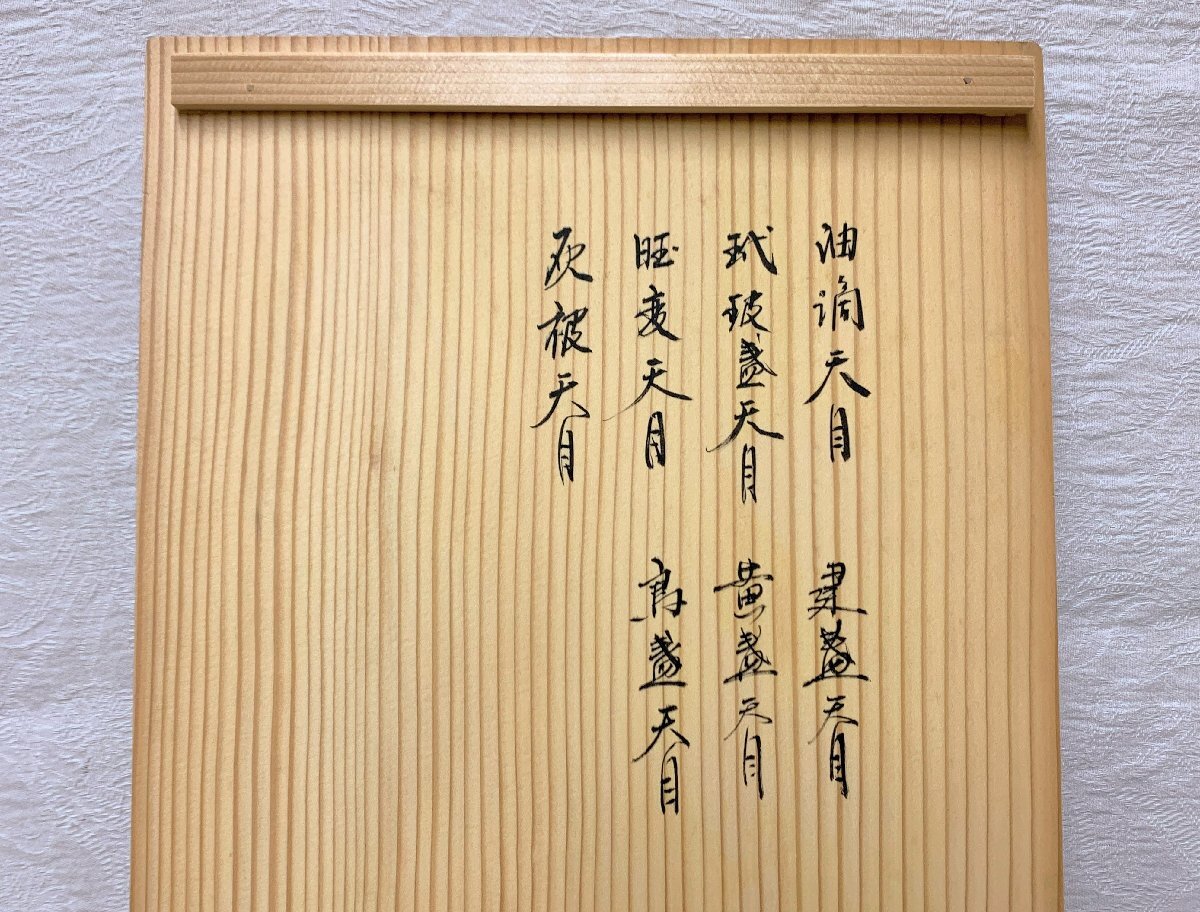 油滴天目 建盞天目
玳玻盞天目 黄盞天目
曜変天目 烏盞天目
灰被天目